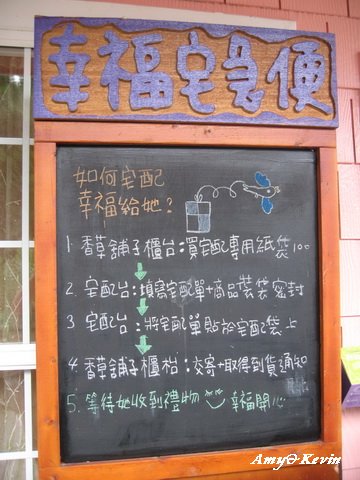 幸福宅急便
如何宅配
幸福給她?
1. 香草舖子櫃台:買宅配專用紙袋100
2. 宅配台:填寫宅配單+商品裝袋密封
3. 宅配台:將宅配單貼於宅配袋上
4. 香草舖子櫃枱:交寄+取得到貨通知
5. 等待她收到禮物 幸福開心
Amy&Kevin